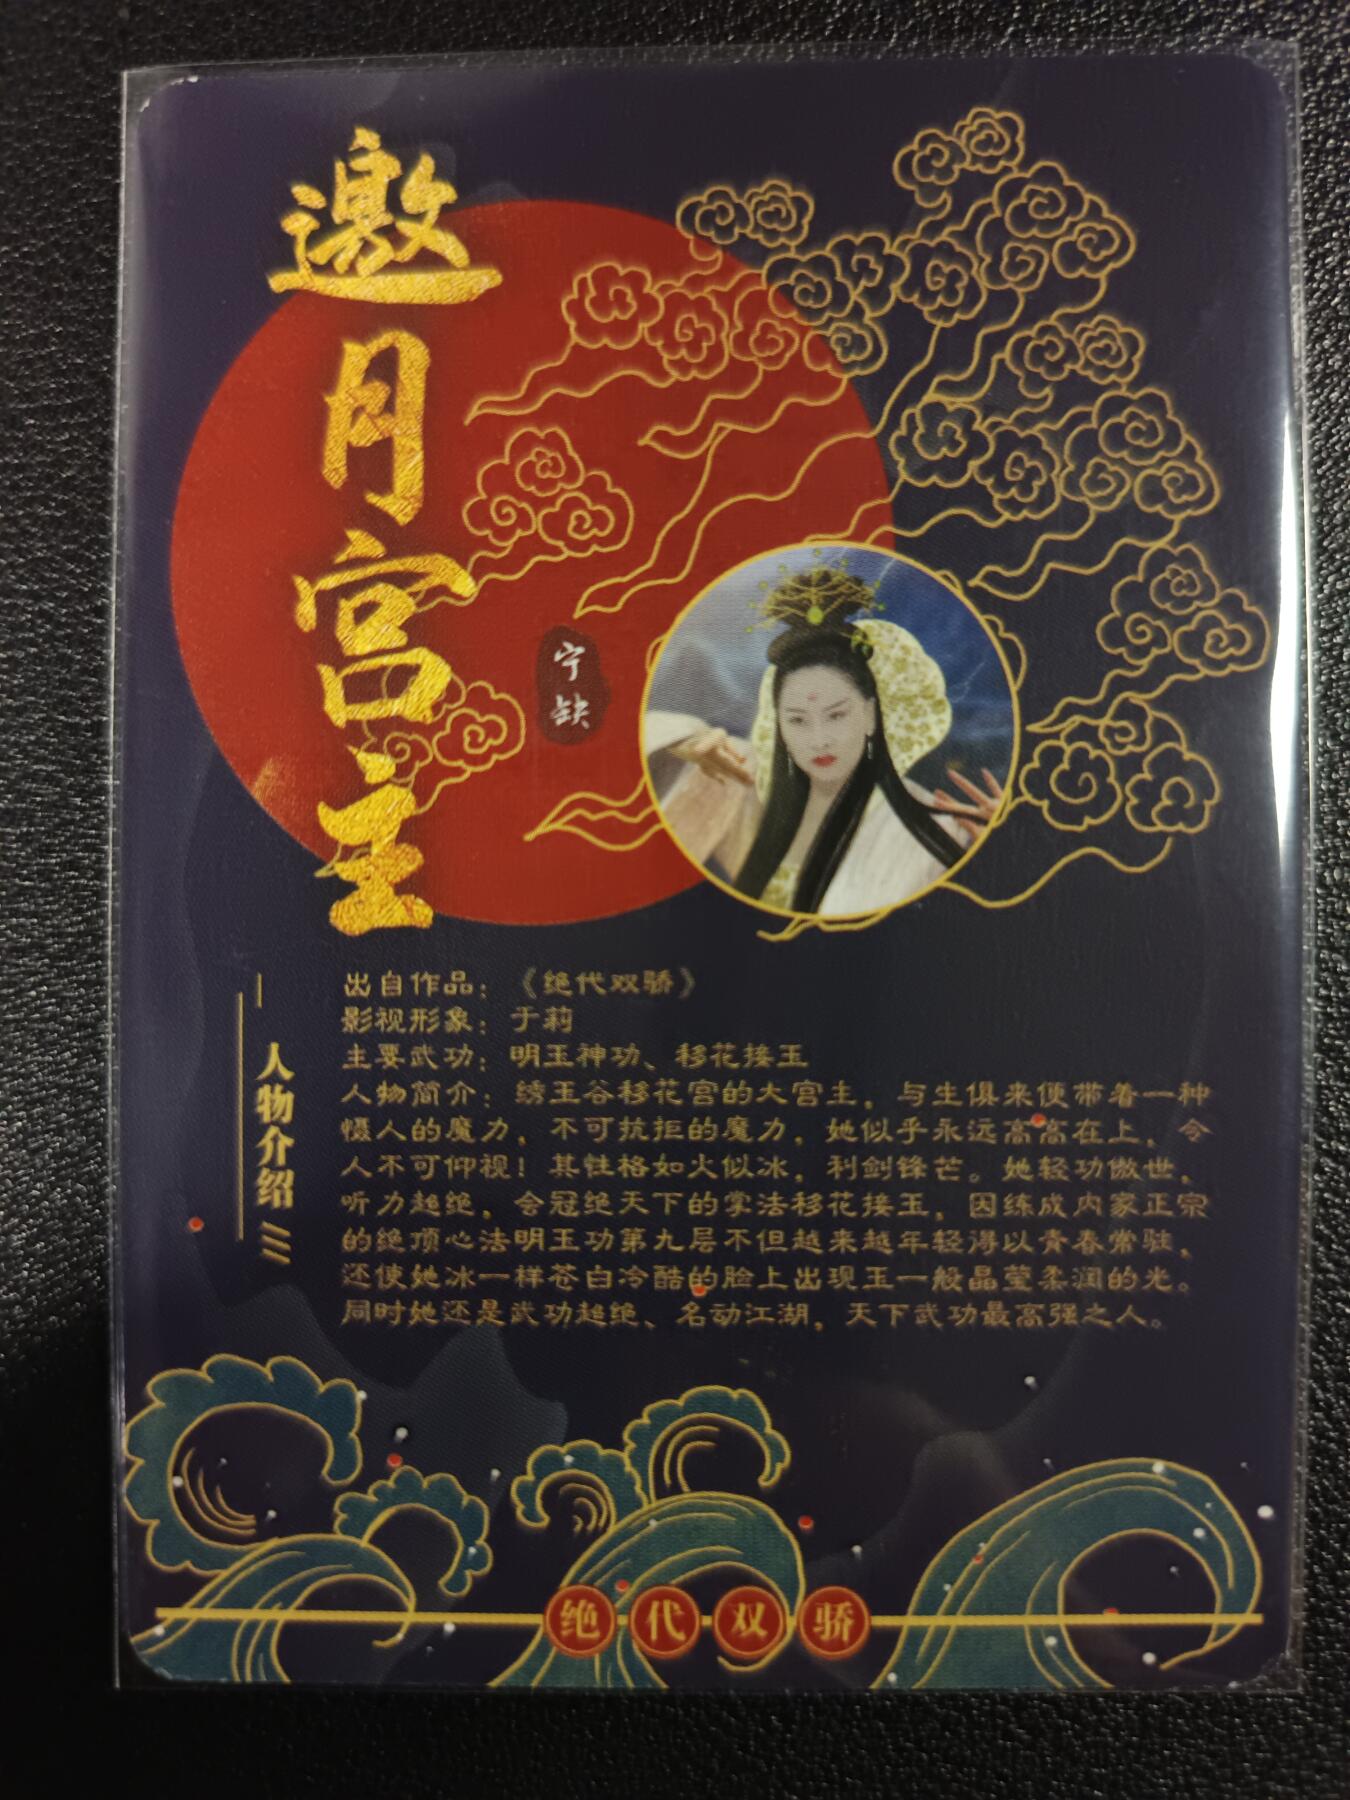 邀月宫主
宁缺
人物介绍
出自作品：《绝代双骄》
影视形象：于莉
主要武功：明玉神功、移花接玉
人物简介：绣玉谷移花宫的大宫主，与生俱来便带着一种
慑人的魔力，不可抗拒的魔力，她似乎永远高高在上，令
人不可仰视！其性格如火似冰，利剑锋芒。她轻功傲世，
听力超绝，会冠绝天下的掌法移花接玉，因练成内家正宗
的绝顶心法明玉功第九层不但越来越年轻得以青春常驻，
还使她冰一样苍白冷酷的脸上出现玉一般晶莹柔润的光。
同时她还是武功超绝、名动江湖，天下武功最高强之人。
绝代双骄